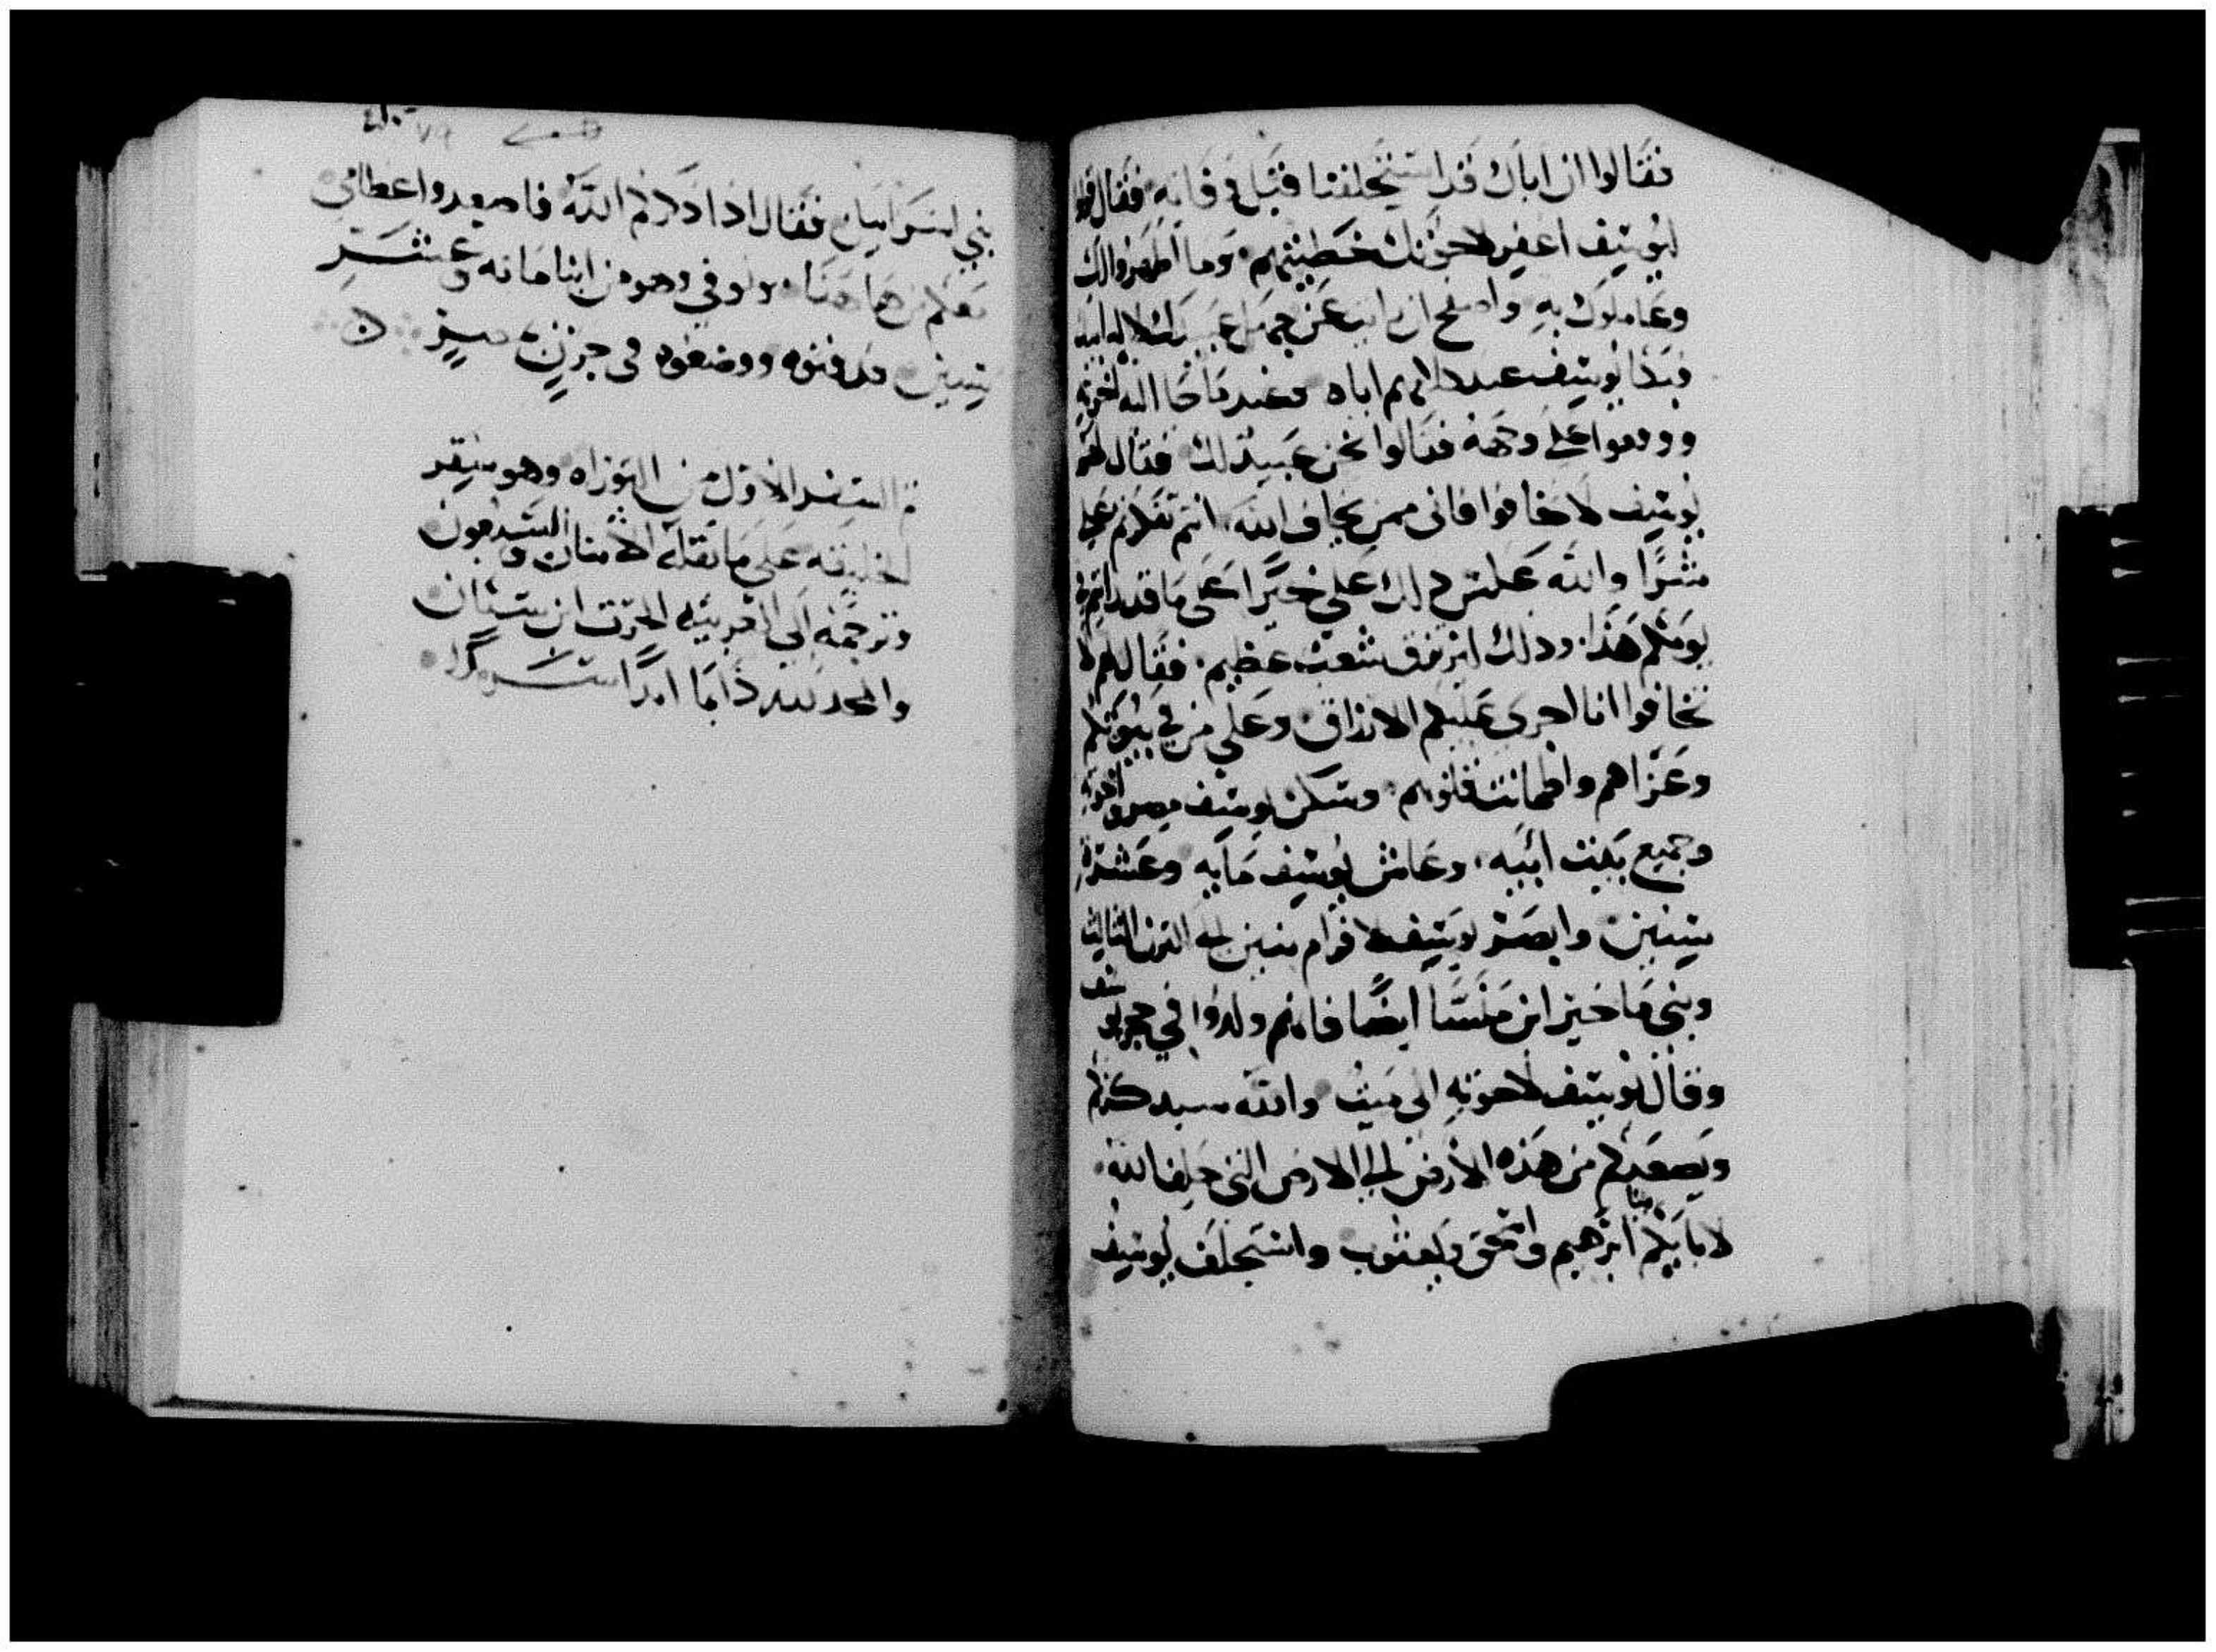 فقالوا ان اباك قد استحلفنا قبل وفاته فقال قولوا
ليوسف اغفر لاخوتك خطيتهم وما اظهروا لك
وعاملوك به واصفح ان رايت عن جهل عبيدك لاله ابيك
وبكا يوسف عند كلامهم اياه وعند ما جا اليه اخوته
ووقعوا على وجهه فقالوا نحن عبيد لك فقال لهم
يوسف لا تخافوا فانى ممن يخاف الله انتم على
شرا والله على خيرا على ما قد
يومكم هذا وذلك ليرزق شعب عظيم فقال لهم لا
تخافوا انا اجرى عليكم الارزاق وعلى من في بيوتكم
وعزاهم واطمانت قلوبهم وسكن يوسف مصر واخوته
وجميع بيت ابيه وعاش يوسف مايه وعشرة
سنين وابصر يوسف لافرام بنين الى القرن الثالث
وبنى ماخير ابن منسا ايضا فانهم ولدوا في حجر يوسف
وقال يوسف لاخوته انى ميت والله سيدكركم
ويصعدكم من هذه الارض الى الارض التى حلف الله
لابايكم ابرهيم واسحق ويعقوب واستحلف يوسف
بني اسراييل فقال اذا ذكركم الله فاصعدوا عظامي
معكم من هاهنا وتوفي وهو من ابنا مايه وعشر
سنين فدفنوه ووضعوه في جرن بمصر
تم السفر الاول من التوراه وهو سفر
الخليقه على ما نقله الاثنان والسبعون
وترجمه الى العربيه الحرث ابن سنان
والمجد لله دايما ابدا سرمدا